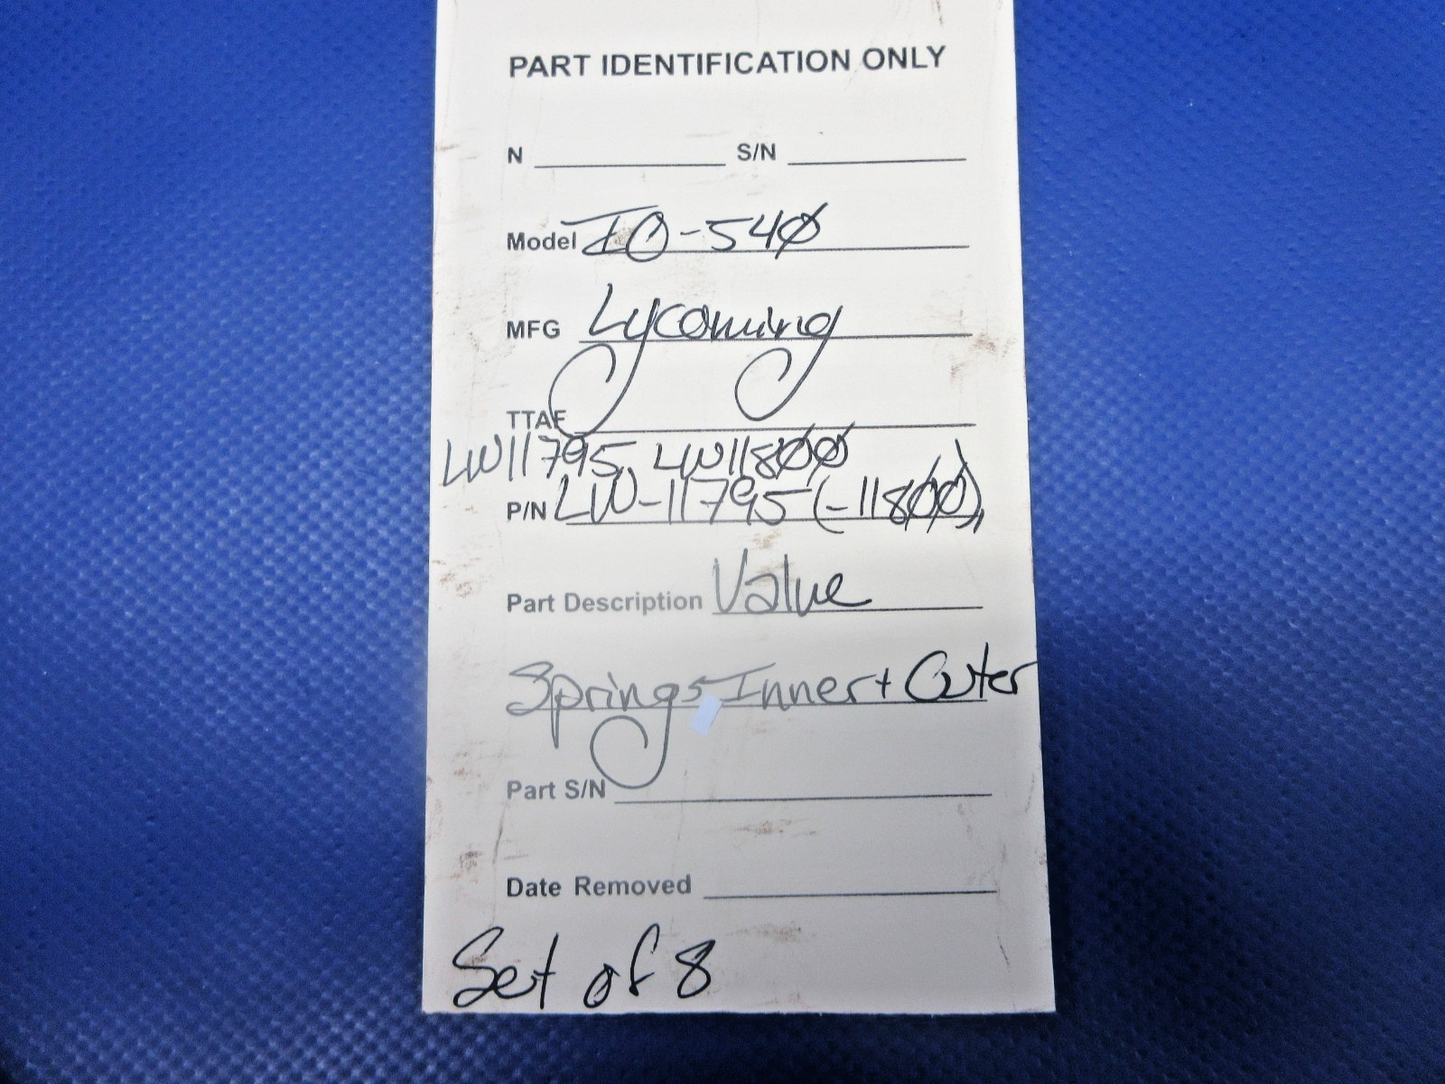 PART IDENTIFICATION ONLY
N S/N
Model IO-540
MFG Lycoming
TTAF
LW11795, LW11800
P/N LW-11795 (-11800),
Part Description Valve
Springs Inner + Outer
Part S/N
Date Removed
Set of 8